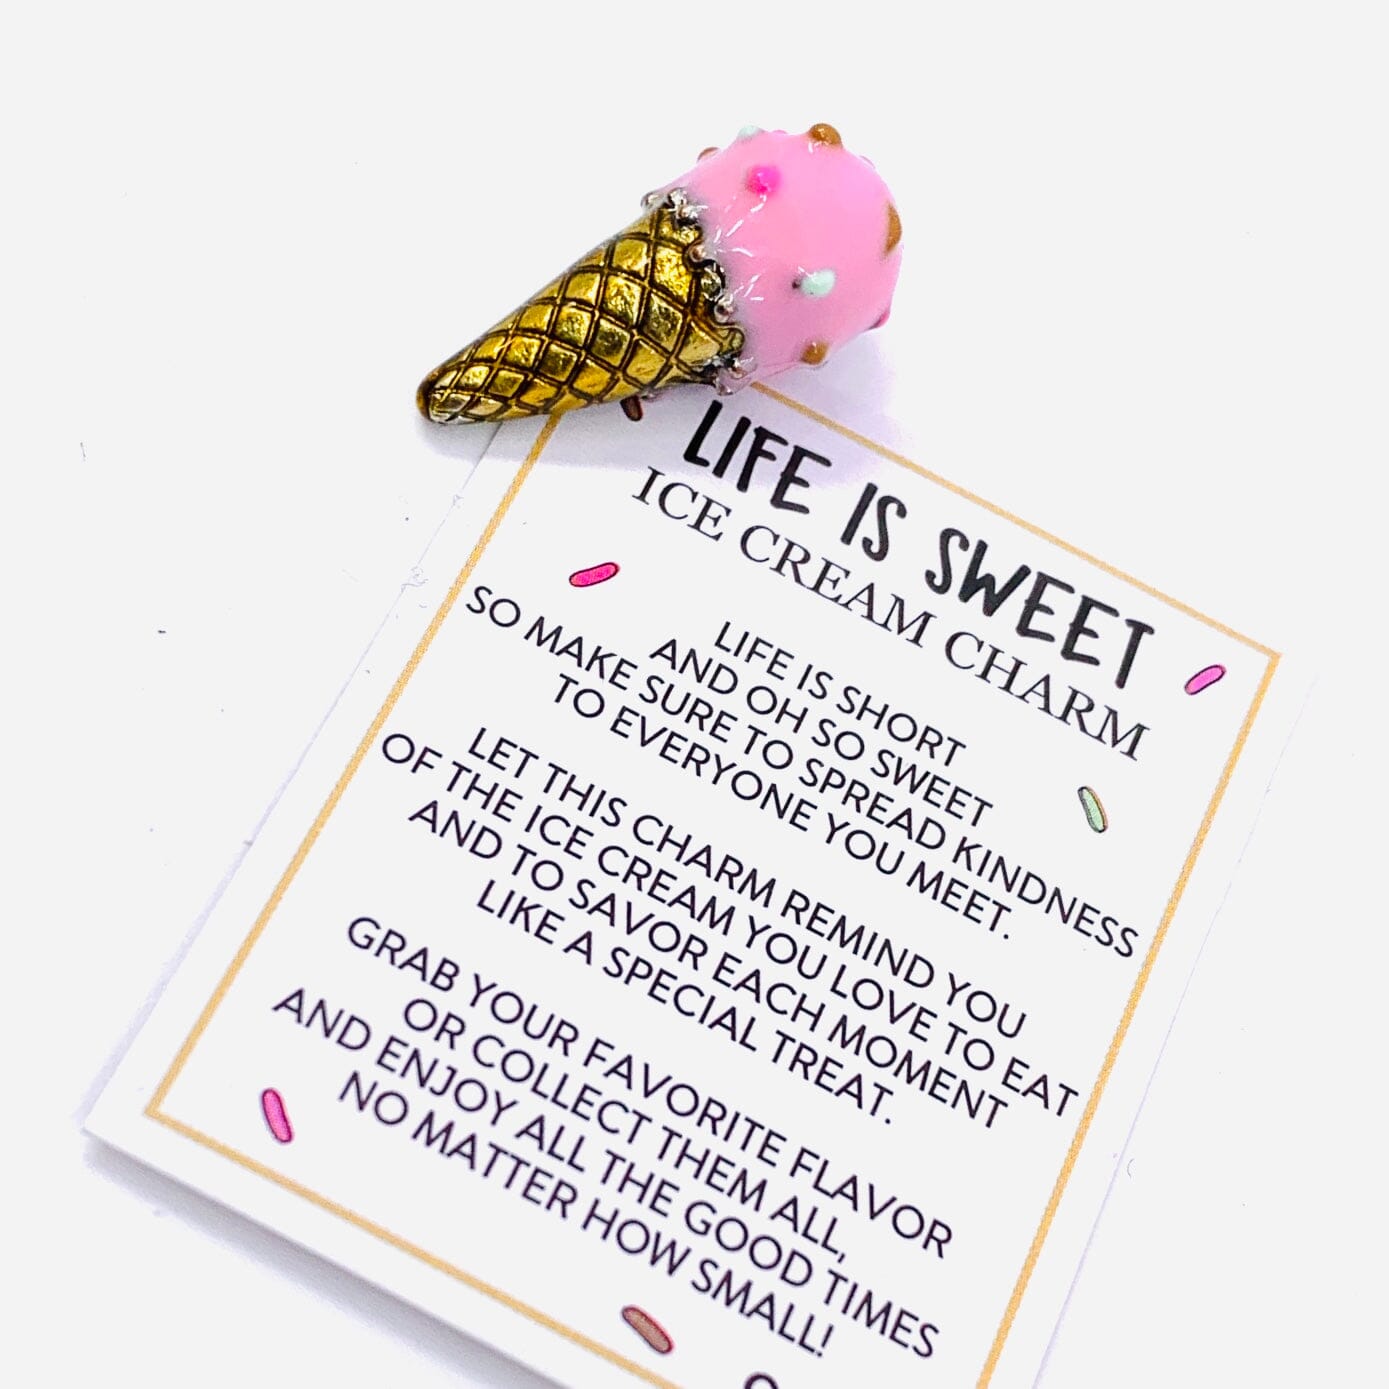 LIFE IS SWEET
ICE CREAM CHARM
LIFE IS SHORT
AND OH SO SWEET
SO MAKE SURE TO SPREAD KINDNESS
TO EVERYONE YOU MEET.
LET THIS CHARM REMIND YOU
OF THE ICE CREAM YOU LOVE TO EAT
AND TO SAVOR EACH MOMENT
LIKE A SPECIAL TREAT.
GRAB YOUR FAVORITE FLAVOR
OR COLLECT THEM ALL,
AND ENJOY ALL THE GOOD TIMES
NO MATTER HOW SMALL!